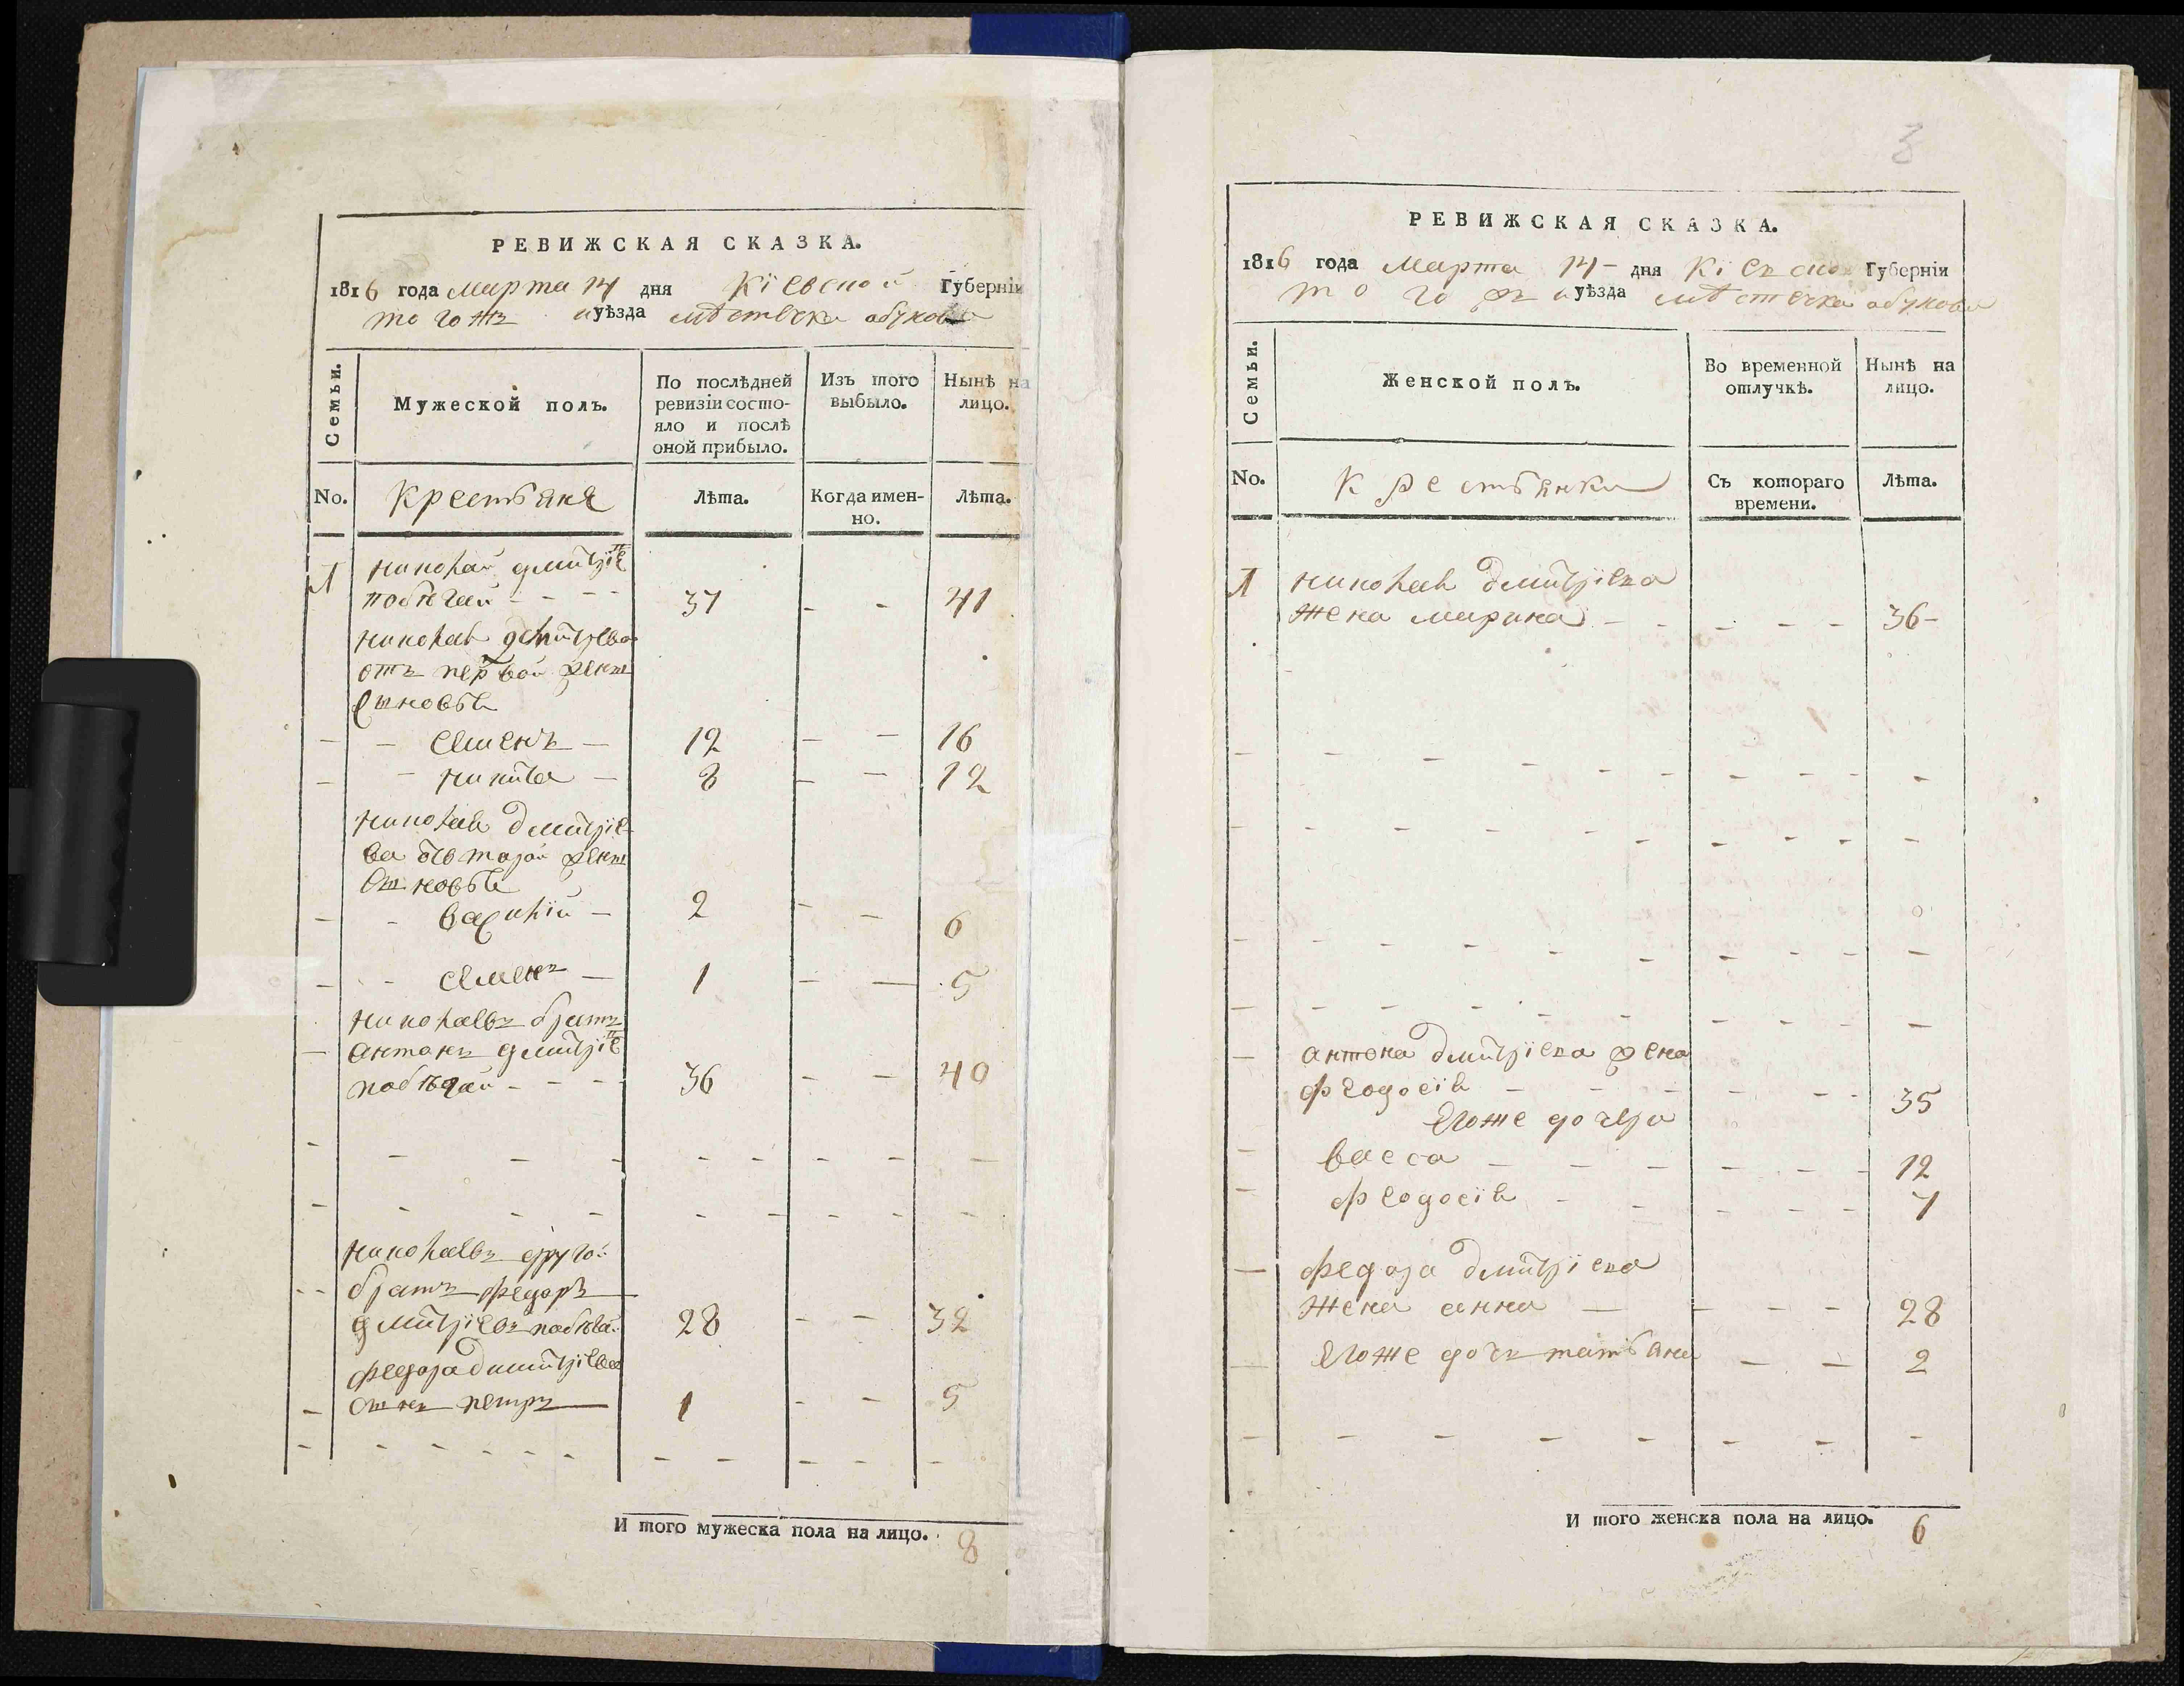 РЕВИЖСКАЯ СКАЗКА.
1816 года марта 14 дня Кіевской Губерніи
того жъ уѣзда мѣстечка абухова
Семьи.
Мужеской полъ.
По послѣдней ревизіи состо-
яло и послѣ
оной прибыло.
Изъ того
выбыло.
Нынѣ на
лицо.
No.
Крестьяне
Лѣта.
Когда имен-
но.
Лѣта.
1 николай дмитріе
37 - - 41
николая дмитрева
отъ первой жены
сыновья
- - семенъ - 12 - - 16
- - никита - 8 - - 12
николая дмитріе-
ва отъ второй жены
сыновья
- - василій - 2 - - 6
- - семенъ - 1 - - 5
николаевъ братъ
- антонъ дмитріе
36 - - 40
николаевъ другой
- - братъ федоръ
дмитріевъ 28 - - 32
федора дмитріева
- сынъ петръ 1 - - 5
И того мужеска пола на лицо. 8
3
РЕВИЖСКАЯ СКАЗКА.
1816 года Марта 14 - дня Кіевской Губерніи
того жъ уѣзда мѣстечка абухова
Семьи.
Женской полъ.
Во временной
отлучкѣ.
Нынѣ на
лицо.
No.
Крестьянки
Съ котораго
времени.
Лѣта.
1 николая дмитріева
жена марина - - - - - 36 -
- антона дмитріева жена
феодосія - - - - - - 35
егоже дочери
- васса - - - - - - 12
- феодосія - - - - - - 7
- федора дмитріева
жена анна - - - - 28
- егоже дочь татьяна - - 2
И того женска пола на лицо. 6